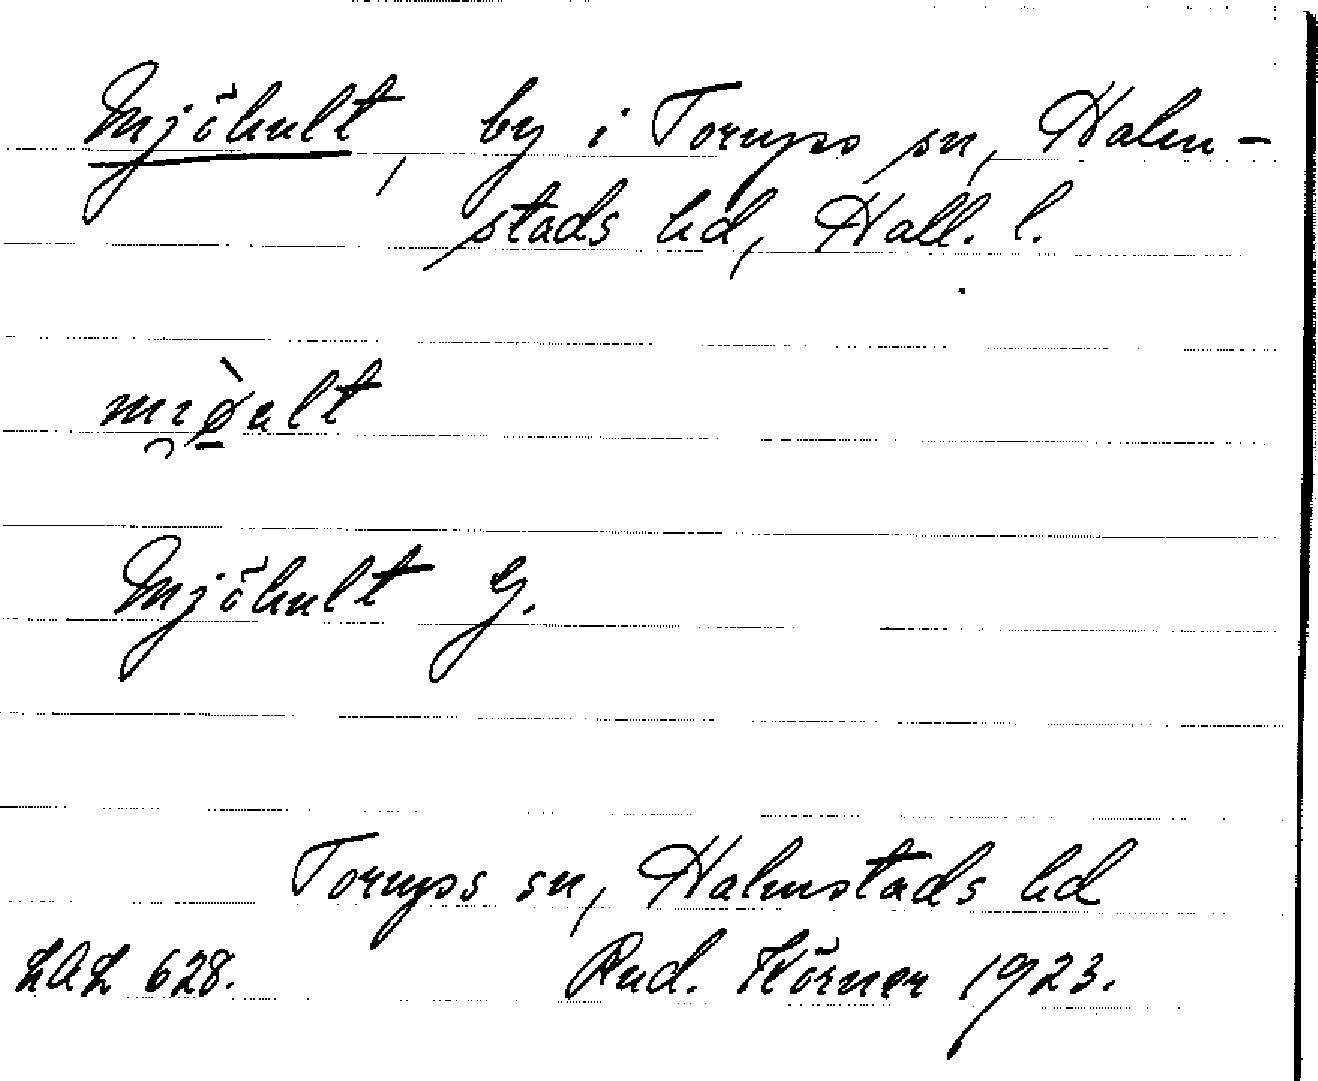 Mjöhult, by i Torups sn, Halm-
stads hd, Hall. l.
mi̯ø̠̀ult
Mjöhult G.
Torups sn, Halmstads hd
LAL 628.
Rud. Körner 1923.